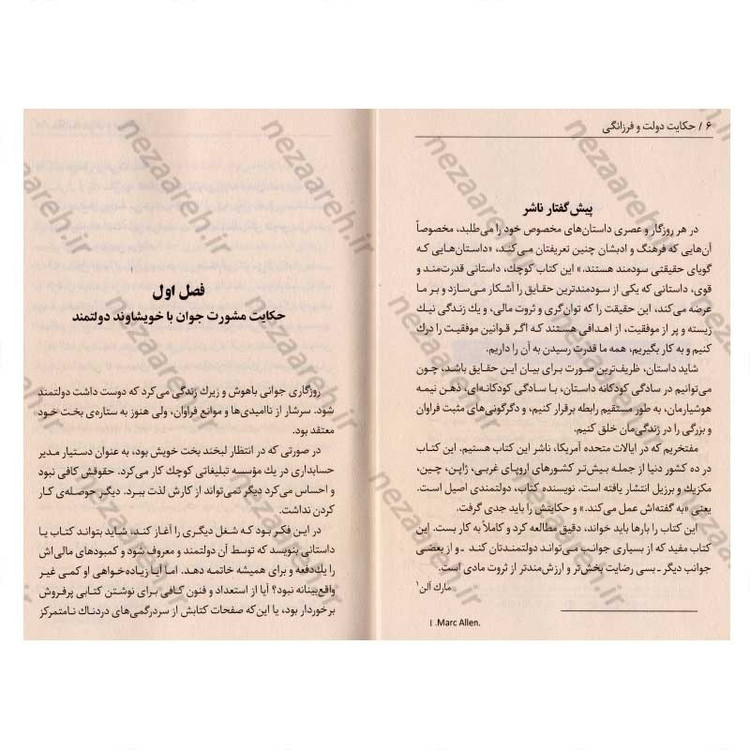 ۶ / حکایت دولت و فرزانگی
پیش‌گفتار ناشر
در هر روزگار و عصری داستان‌های مخصوص خود را می‌طلبد، مخصوصاً
آن‌هایی که فرهنگ و ادبشان چنین تعریفتان می‌کند، «داستان‌هایی که
گویای حقیقتی سودمند هستند.» این کتاب کوچك، داستانی قدرت‌مند و
قوی، داستانی که یکی از سودمندترین حقایق را آشکار می‌سازد و بر ما
عرضه می‌کند، این حقیقت را که توان‌گری و ثروت مالی، و یك زندگی نیك
زیسته و پر از موفقیت، از اهدافی هستند که اگر قوانین موفقیت را درك
کنیم و به کار بگیریم، همه ما قدرت رسیدن به آن را داریم.
شاید داستان، ظریف‌ترین صورت برای بیان این حقایق باشد، چون
می‌توانیم در سادگی کودکانه داستان، با سادگی کودکانه‌ای، ذهن نیمه
هوشیارمان، به طور مستقیم رابطه برقرار کنیم، و دگرگونی‌های مثبت فراوان
و بزرگی را در زندگی‌مان خلق کنیم.
مفتخریم که در ایالات متحده آمریکا، ناشر این کتاب هستیم. این کتاب
در ده کشور دنیا از جمله بیش‌تر کشورهای اروپای غربی، ژاپن، چین،
مکزیك و برزیل انتشار یافته است. نویسنده کتاب، دولتمندی اصیل است.
یعنی «به گفته‌اش عمل می‌کند.» و حکایتش را باید جدی گرفت.
این کتاب را بارها باید خواند، دقیق مطالعه کرد و کاملاً به کار بست. این
کتاب مفید که از بسیاری جوانب می‌تواند دولتمندتان کند ـ و از بعضی
جوانب دیگر ـ بسی رضایت بخش‌تر و ارزش‌مندتر از ثروت مادی است.
مارك آلن۱
۱ .Marc Allen.
فصل اول
حکایت مشورت جوان با خویشاوند دولتمند
روزگاری جوانی باهوش و زیرك زندگی می‌کرد که دوست داشت دولتمند
شود. سرشار از ناامیدی‌ها و موانع فراوان، ولی هنوز به ستاره‌ی بخت خود
معتقد بود.
در صورتی که در انتظار لبخند بخت خویش بود، به عنوان دستیار مدیر
حسابداری در یك مؤسسه تبلیغاتی کوچك کار می‌کرد. حقوقش کافی نبود
و احساس می‌کرد دیگر نمی‌تواند از کارش لذت ببرد. دیگر حوصله‌ی کار
کردن نداشت.
در این فکر بود که شغل دیگری را آغاز کند، شاید بتواند کتاب یا
داستانی بنویسد که توسط آن دولتمند و معروف شود و کمبودهای مالی‌اش
را یك‌دفعه و برای همیشه خاتمه دهد. اما آیا زیاده‌خواهی او کمی غیر
واقع‌بینانه نبود؟ آیا از استعداد و فنون کافی برای نوشتن کتابی پرفروش
برخوردار بود، یا این‌که صفحات کتابش از سردرگمی‌های دردناك نامتمرکز
nezaareh.ir
nezaareh.ir
nezaareh.ir
nezaareh.ir
nezaareh.ir
nezaareh.ir
nezaareh.ir
nezaareh.ir